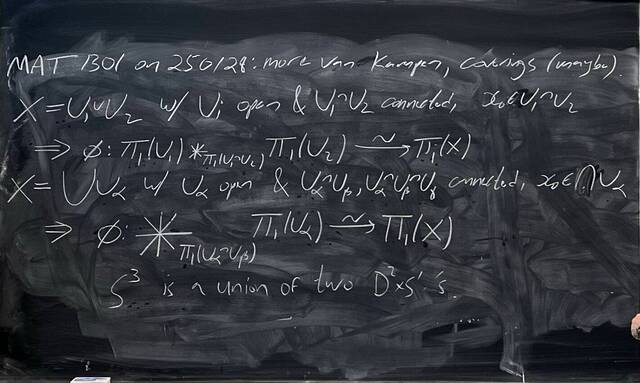 MAT 1301 on 250128: more van Kampen, coverings (maybe).
X = U₁∪U₂ w/ Uᵢ open & U₁∩U₂ connected, x₀∈U₁∩U₂
⇒ ϕ: π₁(U₁) *_{π₁(U₁∩U₂)} π₁(U₂) ⥲ π₁(X)
X = ⋃Uα w/ Uα open & Uα∩Uβ, Uα∩Uβ∩Uγ connected, x₀∈⋂Uα
⇒ ϕ: *_{π₁(Uα∩Uβ)} π₁(Uα) ⥲ π₁(X)
S³ is a union of two D²×S¹'s.